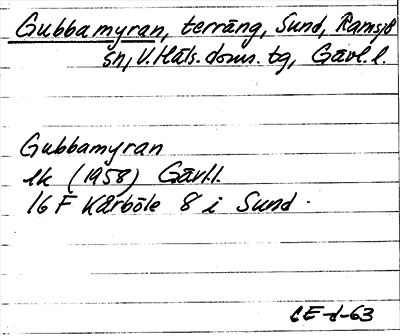 Gubbamyran, terräng, Sund, Ramsjö
sn, V. Häls. doms. tg, Gävl. l.
Gubbamyran
ek (1958) Gävl.l.
16 F Kårböle 8 i Sund.
CE-d-63